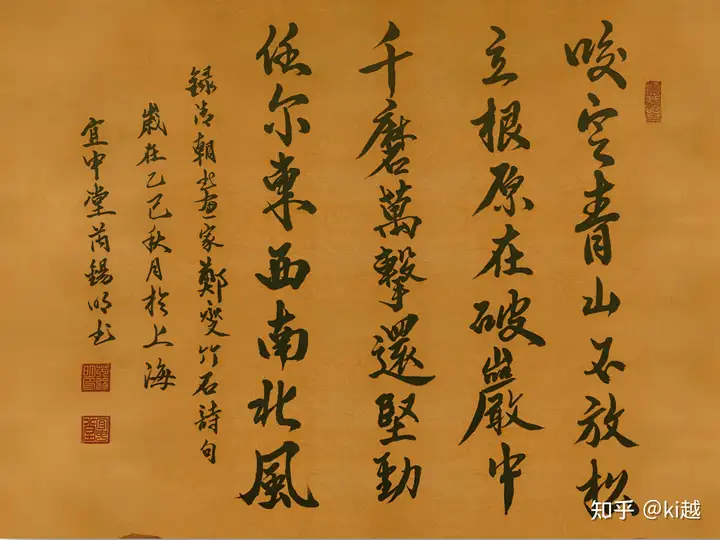 咬定青山不放松
立根原在破巖中
千磨萬擊還堅勁
任尔東西南北風
録清朝书畫家鄭燮竹石詩句
歳在乙巳秋月於上海
宜中堂芮錫明书
知乎 @ki越